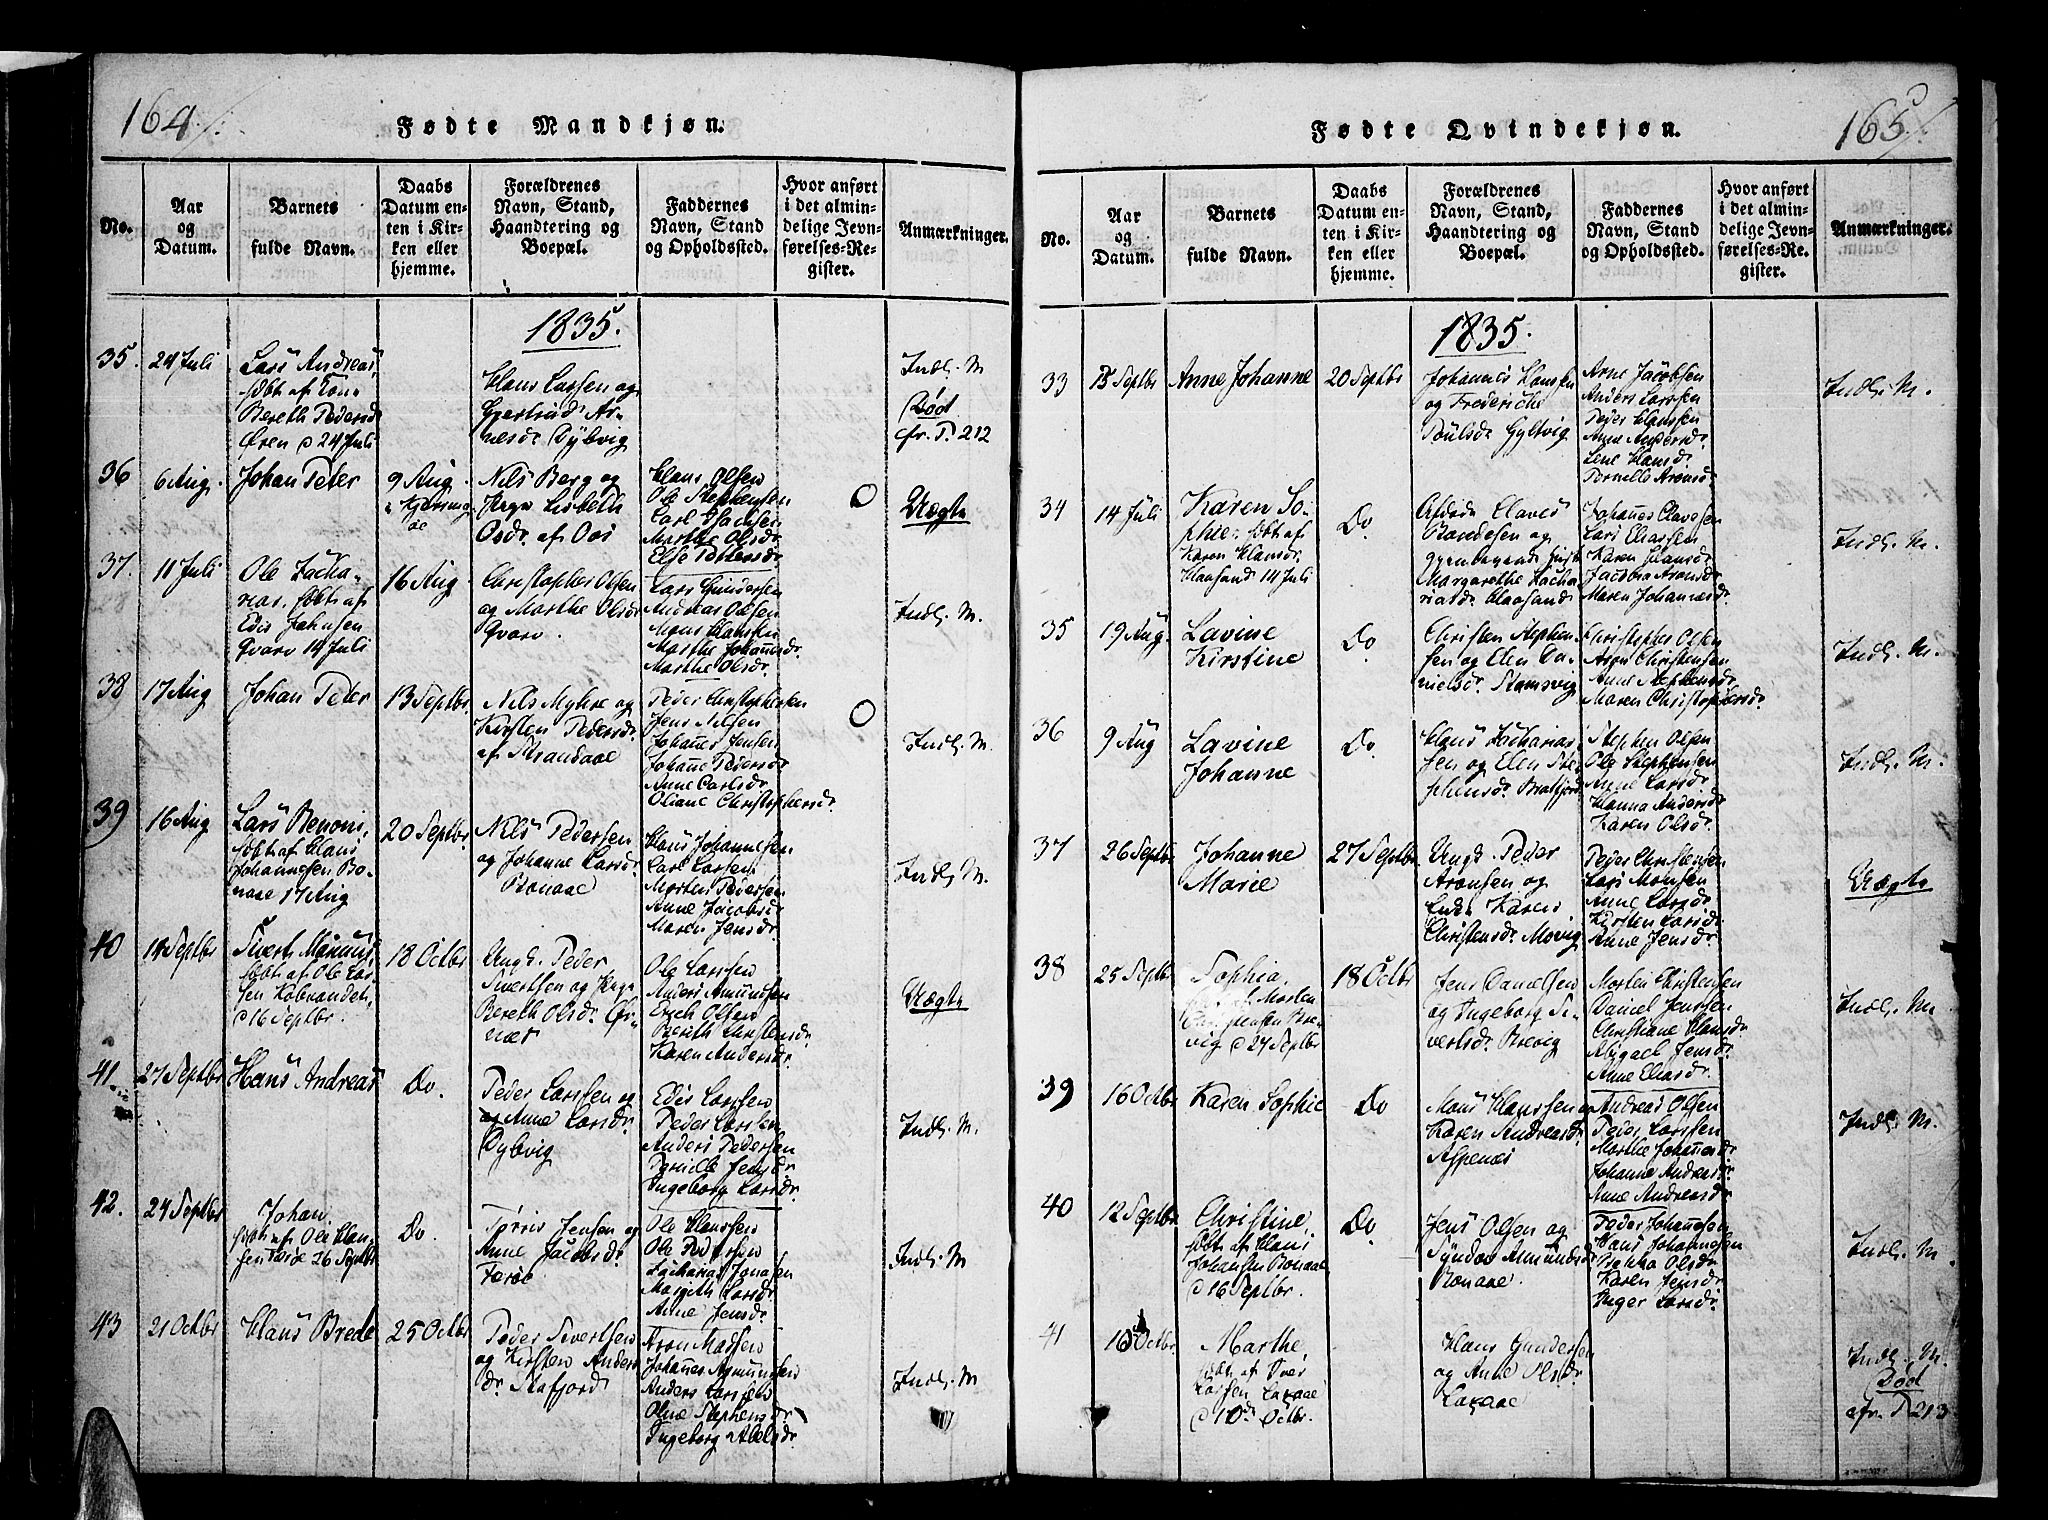 164
Fødte Mandkjøn.
No.
Aar
og
Datum.
Barnets
fulde Navn.
Daabs
Datum en-
ten i Kir-
ken eller
hjemme.
Forældrenes
Navn, Stand,
Haandtering og
Boepæl.
Faddernes
Navn, Stand
og Opholdssted.
Hvor anført
i det almin-
delige Jevn-
førelses-Re-
gister.
Anmærkninger.
1835.
35.
24 Juli
Lars Andreas,
Bereth Pedersd
Øren d 24 Juli
Hans Larsen og
Gjertrud Ar-
nesdr Dybvig
Indl. M
Død
cfr. P. 212
36
6 Aug.
Johan Peter
9 Aug.
Nils Berg og
Pige Lisbeth
Osdr. af Oos
Hans Olsen
Ole Stephensen
Carl Isachsen
Marthe Olsdr
Else Pettersdr
Uægte
37.
11 Juli
Ole Zacha-
rias, døbt af
Edis Johnsen
Qvarv 14 Juli
16 Aug
Christopher Olsen
og Marthe Olsdr
Qvarv.
Lars Gundersen
Andreas Olsen
Mons Hansen
Marthe Johannsdr.
Marthe Olsdr.
Indl. M.
38
17 Aug
Johan Peder
13 Septbr
Nils Myhre og
Kirsten Pedersdr.
af Strandaae
Peder Christophersen
Jens Nilsen
Johannes Jensen
Johanne Pedersdr
Anne Carlsdr
Oliane Christophersdr
Indl. M.
39
16 Aug
Lars Benoni,
døbt af Hans
Johannesen Bo-
naae 17 Aug
20 Septbr
Nils Pedersen
og Johanne Larsdr.
Bonaae
Hans Johannesen
Carl Larsen
Morten Pedersen
Anne Jacobsdr
Maren Jensdr
Indl. M.
40
14 Septbr
Sivert Monnus,
døbt af Ole Lar-
sen
d 16 Septbr.
18 Octbr
Ungk. Peder
Sivertsen og Pige
Bereth Olsdr. Ør-
næs
Ole Larsen
Anders Amundsen
Erich Olsen
Bereth Christensdr.
Karen Andersdr
Uægte
41.
27 Septbr
Hans Andreas
Do.
Peder Larsen og
og Anne Larsdr.
Dybvig
Edis Larsen
Peder Larsen
Anders Pedersen
Pernille Jensdr
Ingeborg Larsdr.
Indl. M.
42.
24 Septbr
Johan,
døbt af Ole Han-
sen 26 Septbr
Do.
Tørris Jensen og
Anne Jacobsdr.
Færøe
Ole Hansen
Ole Pedersen
Zacharias Jonasen
Margith Larsdr
Anne Jensdr
Indl. M
43
21 Octbr
Hans Brede
25 Octbr
Peder Sivertsen
og Kirsten Anders
dr. Stafjord
Aron Madsen
Johannes Asmundsen
Anders Larsen
Oline Stephensdr.
Ingeborg Abelsdr.
Indl. M
165
Fødte Qvindekjøn.
No.
Aar
og
Datum.
Barnets
fulde Navn.
Daabs
Datum en-
ten i Kir-
ken eller
hjemme.
Forældrenes
Navn, Stand,
Haandtering og
Boepæl.
Faddernes
Navn, Stand
og Opholdssted.
Hvor anført
i det almin-
delige Jevn-
førelses-Re-
gister.
Anmærkninger.
1835.
33
15 Septbr
Anne Johanne
20 Septbr
Johannes Hansen
og Frederiche
Poulsdr Gyltvig
Arne Jacobsen
Anders Larsen
Peder Hansen
Anne Andersdr.
Lene Hansdr
Pernille Aronsdr
Indl. M.
34
14 Juli
Karen So-
phie, døbt af
Karen Hansdr.
Haasand 14 Juli
Do.
Afdøde Claves
Bendesen og
gjenlevende
Margarethe Zacha
riasdr Haasand
Johannes Clavesen
Lars Eliassen
Karen Hansdr
Jacobea Aronsdr
Maren Johannesdr.
Indl. M.
35
19 Aug.
Lavine
Kirstine
Do
Christen Stephen-
sen og Elen Da-
nielsdr. Stamsvig
Christopher Olsen
Aron Christensen
Anne Stephensdr.
Maren Christophersdr.
Indl. M.
36
9 Aug
Lavine
Johanne
Do
Hans Zacharias
sen og Elen Ste-
phensdr. Bratfjord
Stephen Olsen
Ole Stephensen
Anne Larsdr.
Hanna Andersdr
Karen Olsdr.
Indl. M.
37
26 Septbr
Johanne
Marie
27 Septbr
Ungk. Peder
Aronsen og
Enke Karen
Christensdr. Movig
Peder Christensen
Lars Monsen
Anne Larsdr
Kirsten Larsdr.
Anne Jensdr
Uægte
38
25 Septbr
Sophia,
Morten
Christensen Bre-
vig d 27 Septbr
18 Octbr
Jens Danielsen
og Ingeborg Si-
vertsdr. Brevig
Morten Christensen
Daniel Jenssen
Christiane Hansdr
Abigael Jensdr.
Anne Eliasdr.
Indl. M.
39
16 Octbr
Karen Sophie
Do
Mons Hansen og
Karen Andreasdr.
Aspenes
Andreas Olsen
Peder Larsen
Marthe Johannesdr
Johanne Andreasdr
Anne Andreasdr
Indl. M.
40
12 Septbr
Christine,
døbt af Hans
Johansen Bonaae
d 16 Septbr.
Do
Jens Olsen og
Synnøv Asmundsdr
Bonaae.
Peder Johannesen
Hans Johannesen
Olsdr.
Karen Jensdr
Inger Larsdr.
Indl. M
41
10 Octbr.
Marthe,
døbt af Iver
Larsen Laxaae
d 10de Octbr.
Hans Gundersen
og Anne Olsdr.
Laxaae
Indl. M.
Død
cfr. P 213